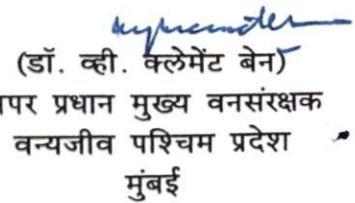 (डॉ. व्ही. क्लेमेंट बेन)
पर प्रधान मुख्य वनसंरक्षक
वन्यजीव पश्चिम प्रदेश
मुंबई